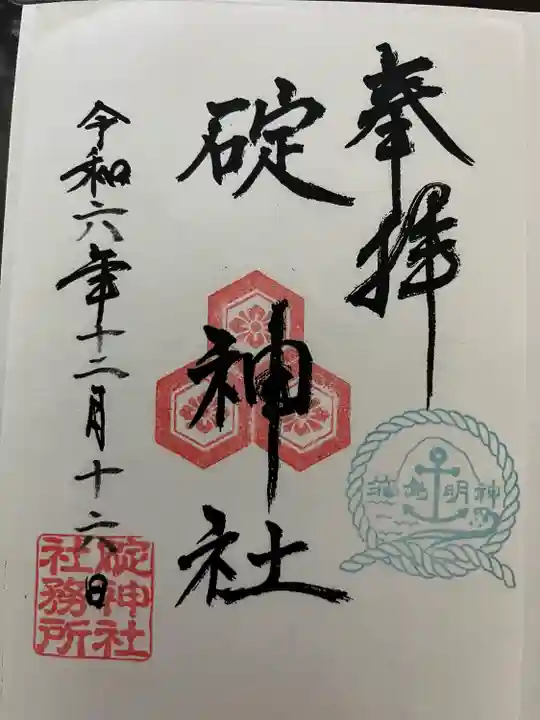 奉拝
碇神社
令和六年十二月十六日
箱島明神
碇神社
社務所